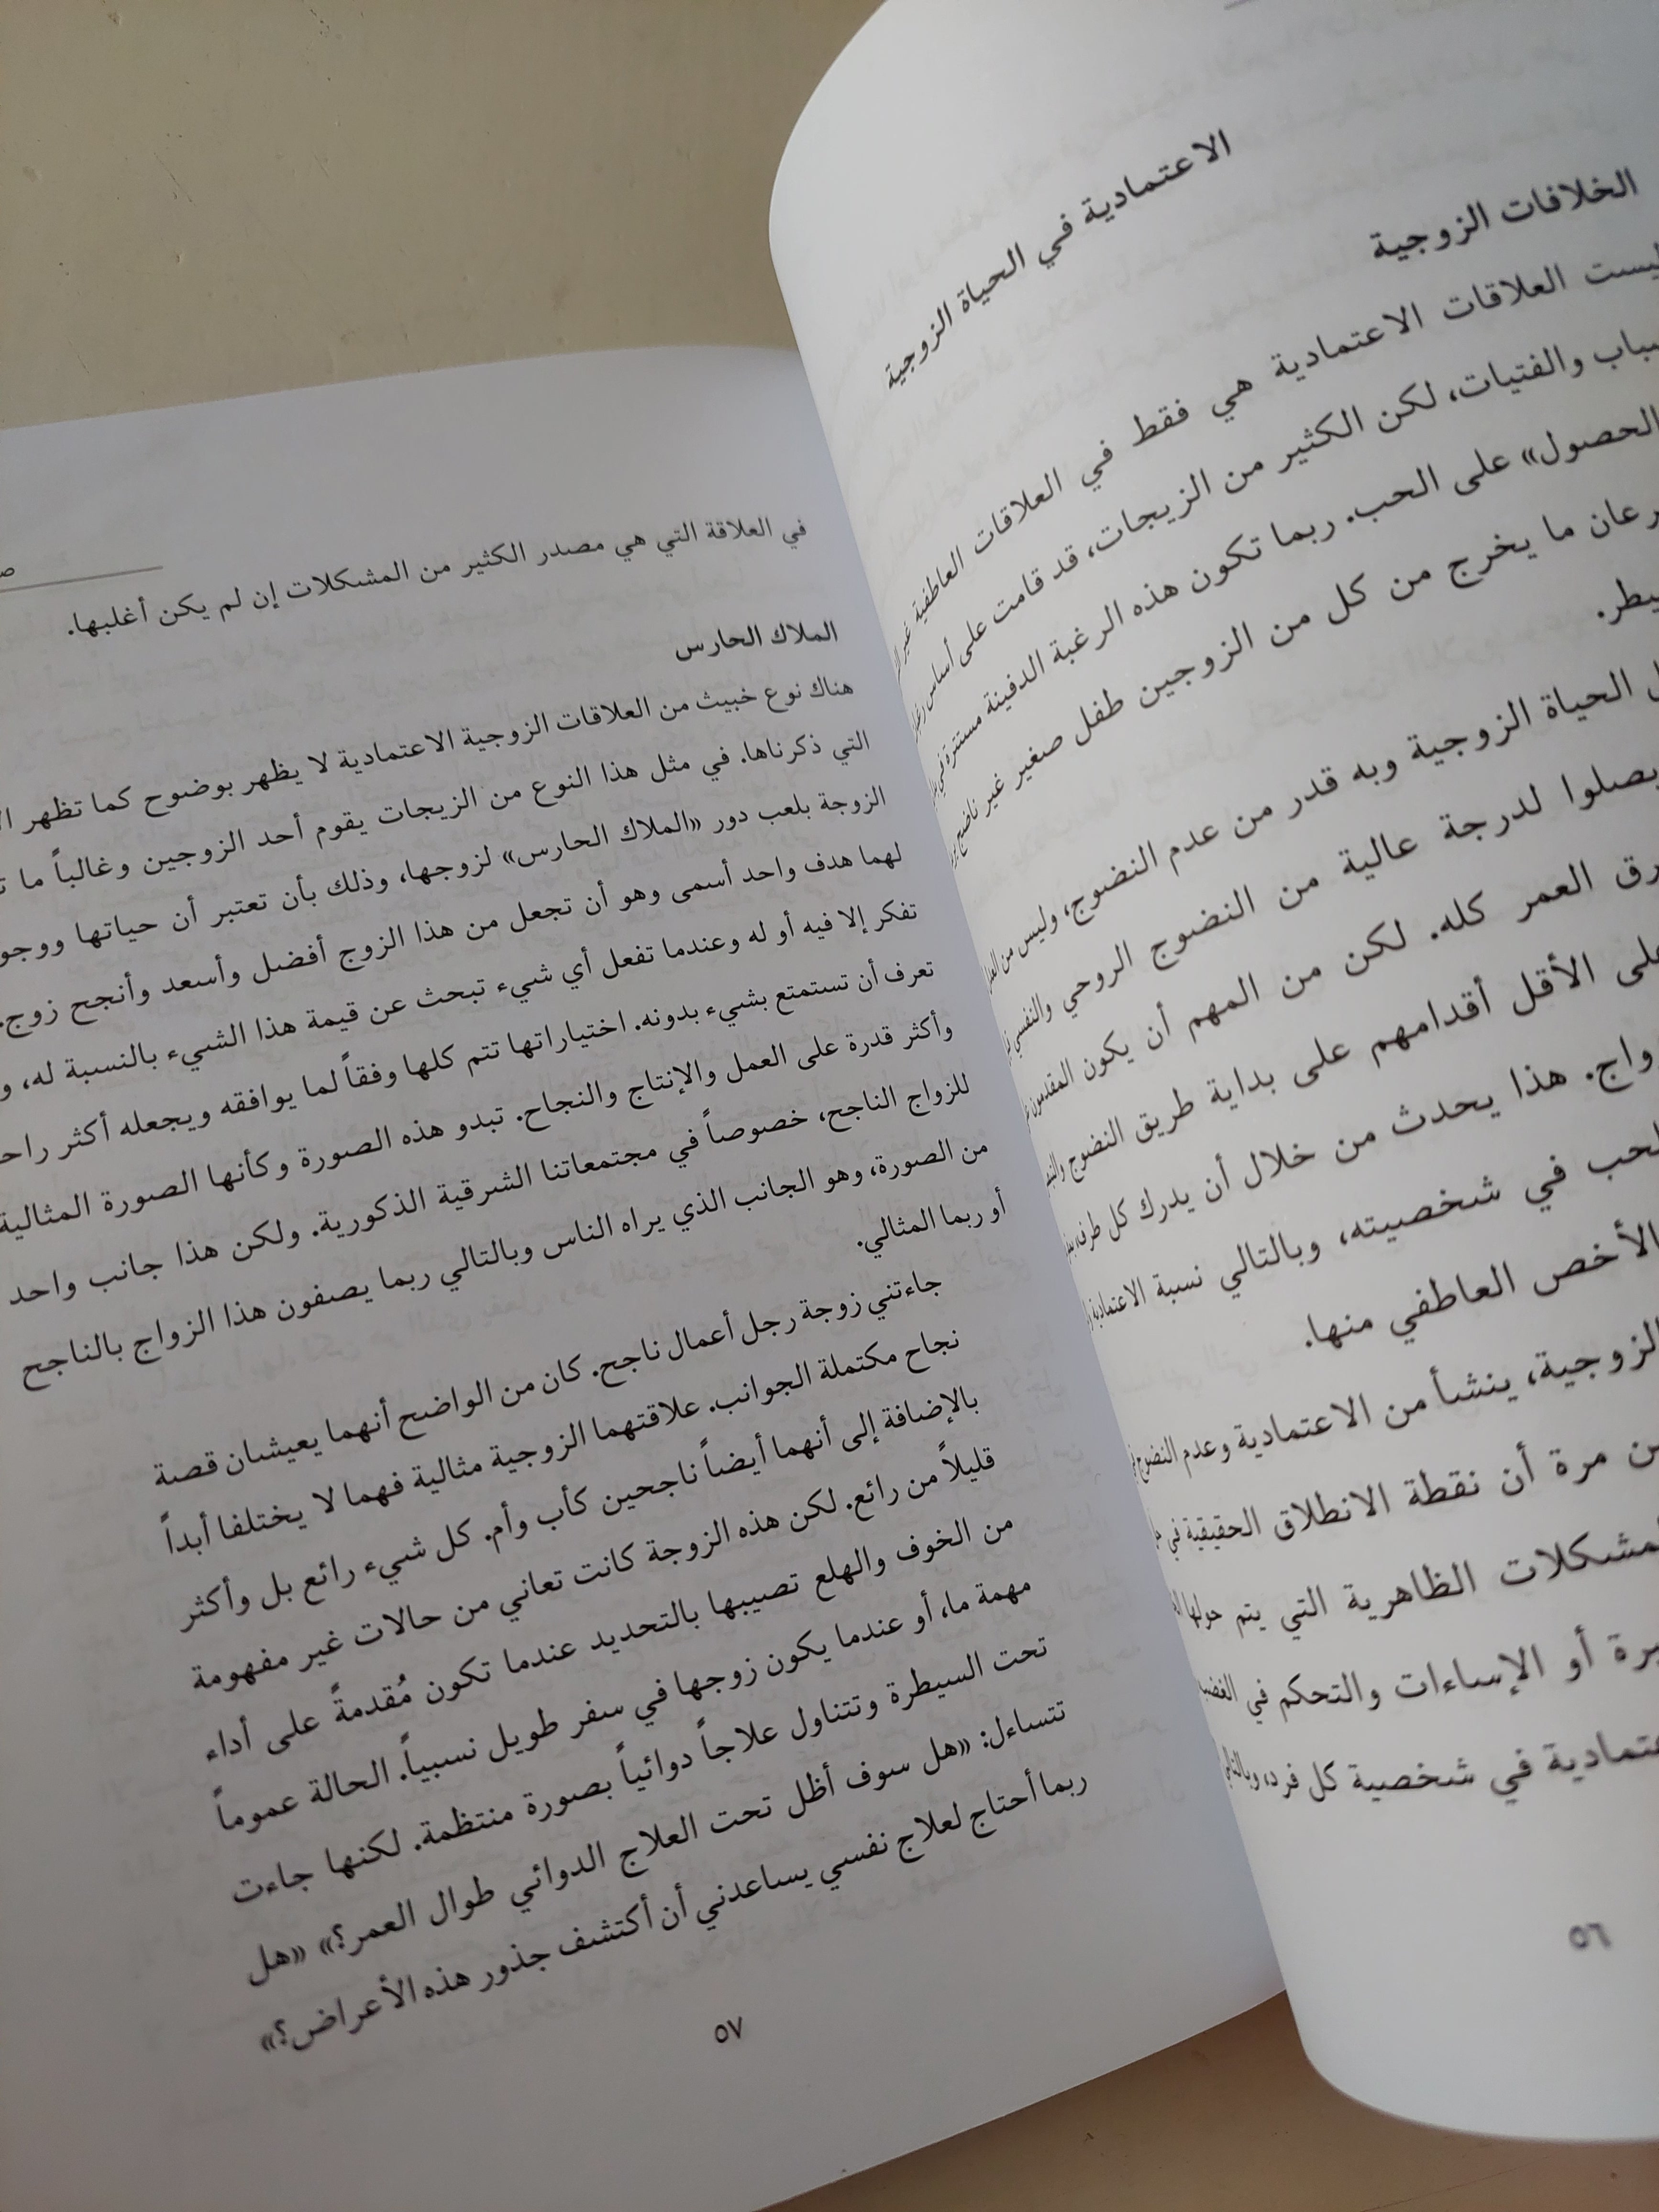 الاعتمادية في الحياة الزوجية
الخلافات الزوجية
ليست العلاقات الاعتمادية هي فقط في العلاقات العاطفية
والفتيات، لكن الكثير من الزيجات، قد قامت على أساس
الحصول» على الحب. ربما تكون هذه الرغبة الدفينة مستترة
ما يخرج من كل من الزوجين طفل صغير غير ناضج
الحياة الزوجية وبه قدر من عدم النضوج، وليس من
يصلوا لدرجة عالية من النضوج الروحي والنفسي
العمر كله. لكن من المهم أن يكون المقدمون
على الأقل أقدامهم على بداية طريق النضوج
هذا يحدث من خلال أن يدرك كل طرف
الحب في شخصيته، وبالتالي نسبة الاعتمادية
الأخص العاطفي منها.
الزوجية، ينشأ من الاعتمادية وعدم النضوج
مرة أن نقطة الانطلاق الحقيقية في
المشكلات الظاهرية التي يتم حولها
أو الإساءات والتحكم في
في شخصية كل فرد، وبالتالي
٥٦
في العلاقة التي هي مصدر الكثير من المشكلات إن لم يكن أغلبها.
الملاك الحارس
هناك نوع خبيث من العلاقات الزوجية الاعتمادية لا يظهر بوضوح كما تظهر
التي ذكرناها. في مثل هذا النوع من الزيجات يقوم أحد الزوجين وغالباً ما
الزوجة بلعب دور «الملاك الحارس» لزوجها، وذلك بأن تعتبر أن حياتها
لهما هدف واحد أسمى وهو أن تجعل من هذا الزوج أفضل وأسعد وأنجح زوج.
تفكر إلا فيه أو له وعندما تفعل أي شيء تبحث عن قيمة هذا الشيء بالنسبة له،
تعرف أن تستمتع بشيء بدونه. اختياراتها تتم كلها وفقاً لما يوافقه ويجعله أكثر
وأكثر قدرة على العمل والإنتاج والنجاح. تبدو هذه الصورة وكأنها الصورة المثالية
للزواج الناجح، خصوصاً في مجتمعاتنا الشرقية الذكورية. ولكن هذا جانب واحد
من الصورة، وهو الجانب الذي يراه الناس وبالتالي ربما يصفون هذا الزواج بالناجح
أو ربما المثالي.
جاءتني زوجة رجل أعمال ناجح. كان من الواضح أنهما يعيشان قصة
نجاح مكتملة الجوانب. علاقتهما الزوجية مثالية فهما لا يختلفا أبداً
بالإضافة إلى أنهما أيضاً ناجحين كأب وأم. كل شيء رائع بل وأكثر
قليلاً من رائع. لكن هذه الزوجة كانت تعاني من حالات غير مفهومة
من الخوف والهلع تصيبها بالتحديد عندما تكون مُقدمةً على أداء
مهمة ما، أو عندما يكون زوجها في سفر طويل نسبياً. الحالة عموماً
تحت السيطرة وتتناول علاجاً دوائياً بصورة منتظمة. لكنها جاءت
تتساءل: «هل سوف أظل تحت العلاج الدوائي طوال العمر؟» «هل
ربما أحتاج لعلاج نفسي يساعدني أن أكتشف جذور هذه الأعراض؟»
٥٧